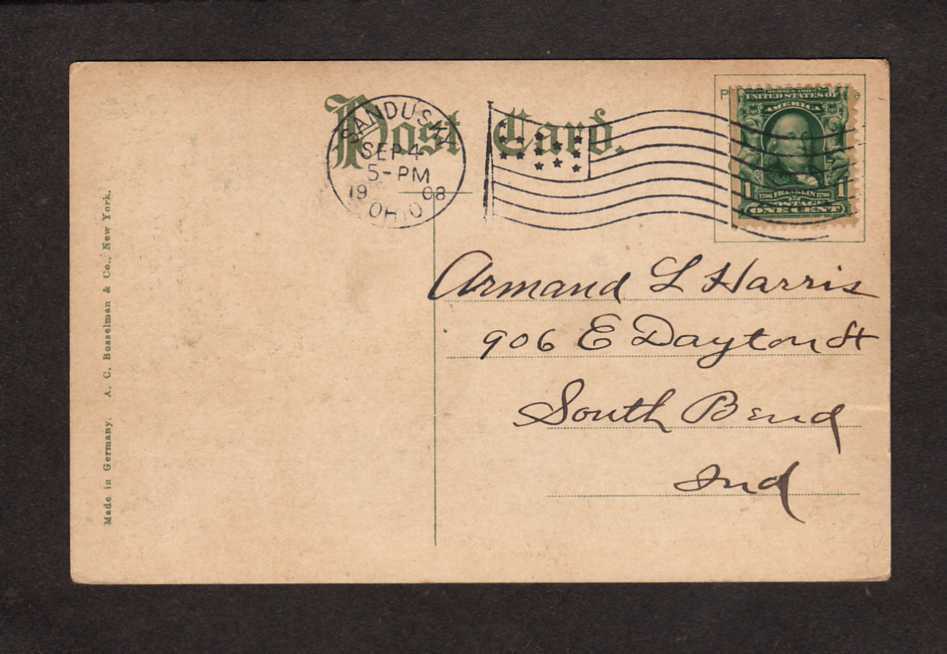 Post Card.
SANDUSKY
SEP 4
5-PM
1908
OHIO
UNITED STATES OF
AMERICA
1 FRANKLIN 1
POSTAGE
ONE CENT
Armand L Harris
906 E Dayton St
South Bend
Ind
Made in Germany. A. C. Bosselman & Co., New York.